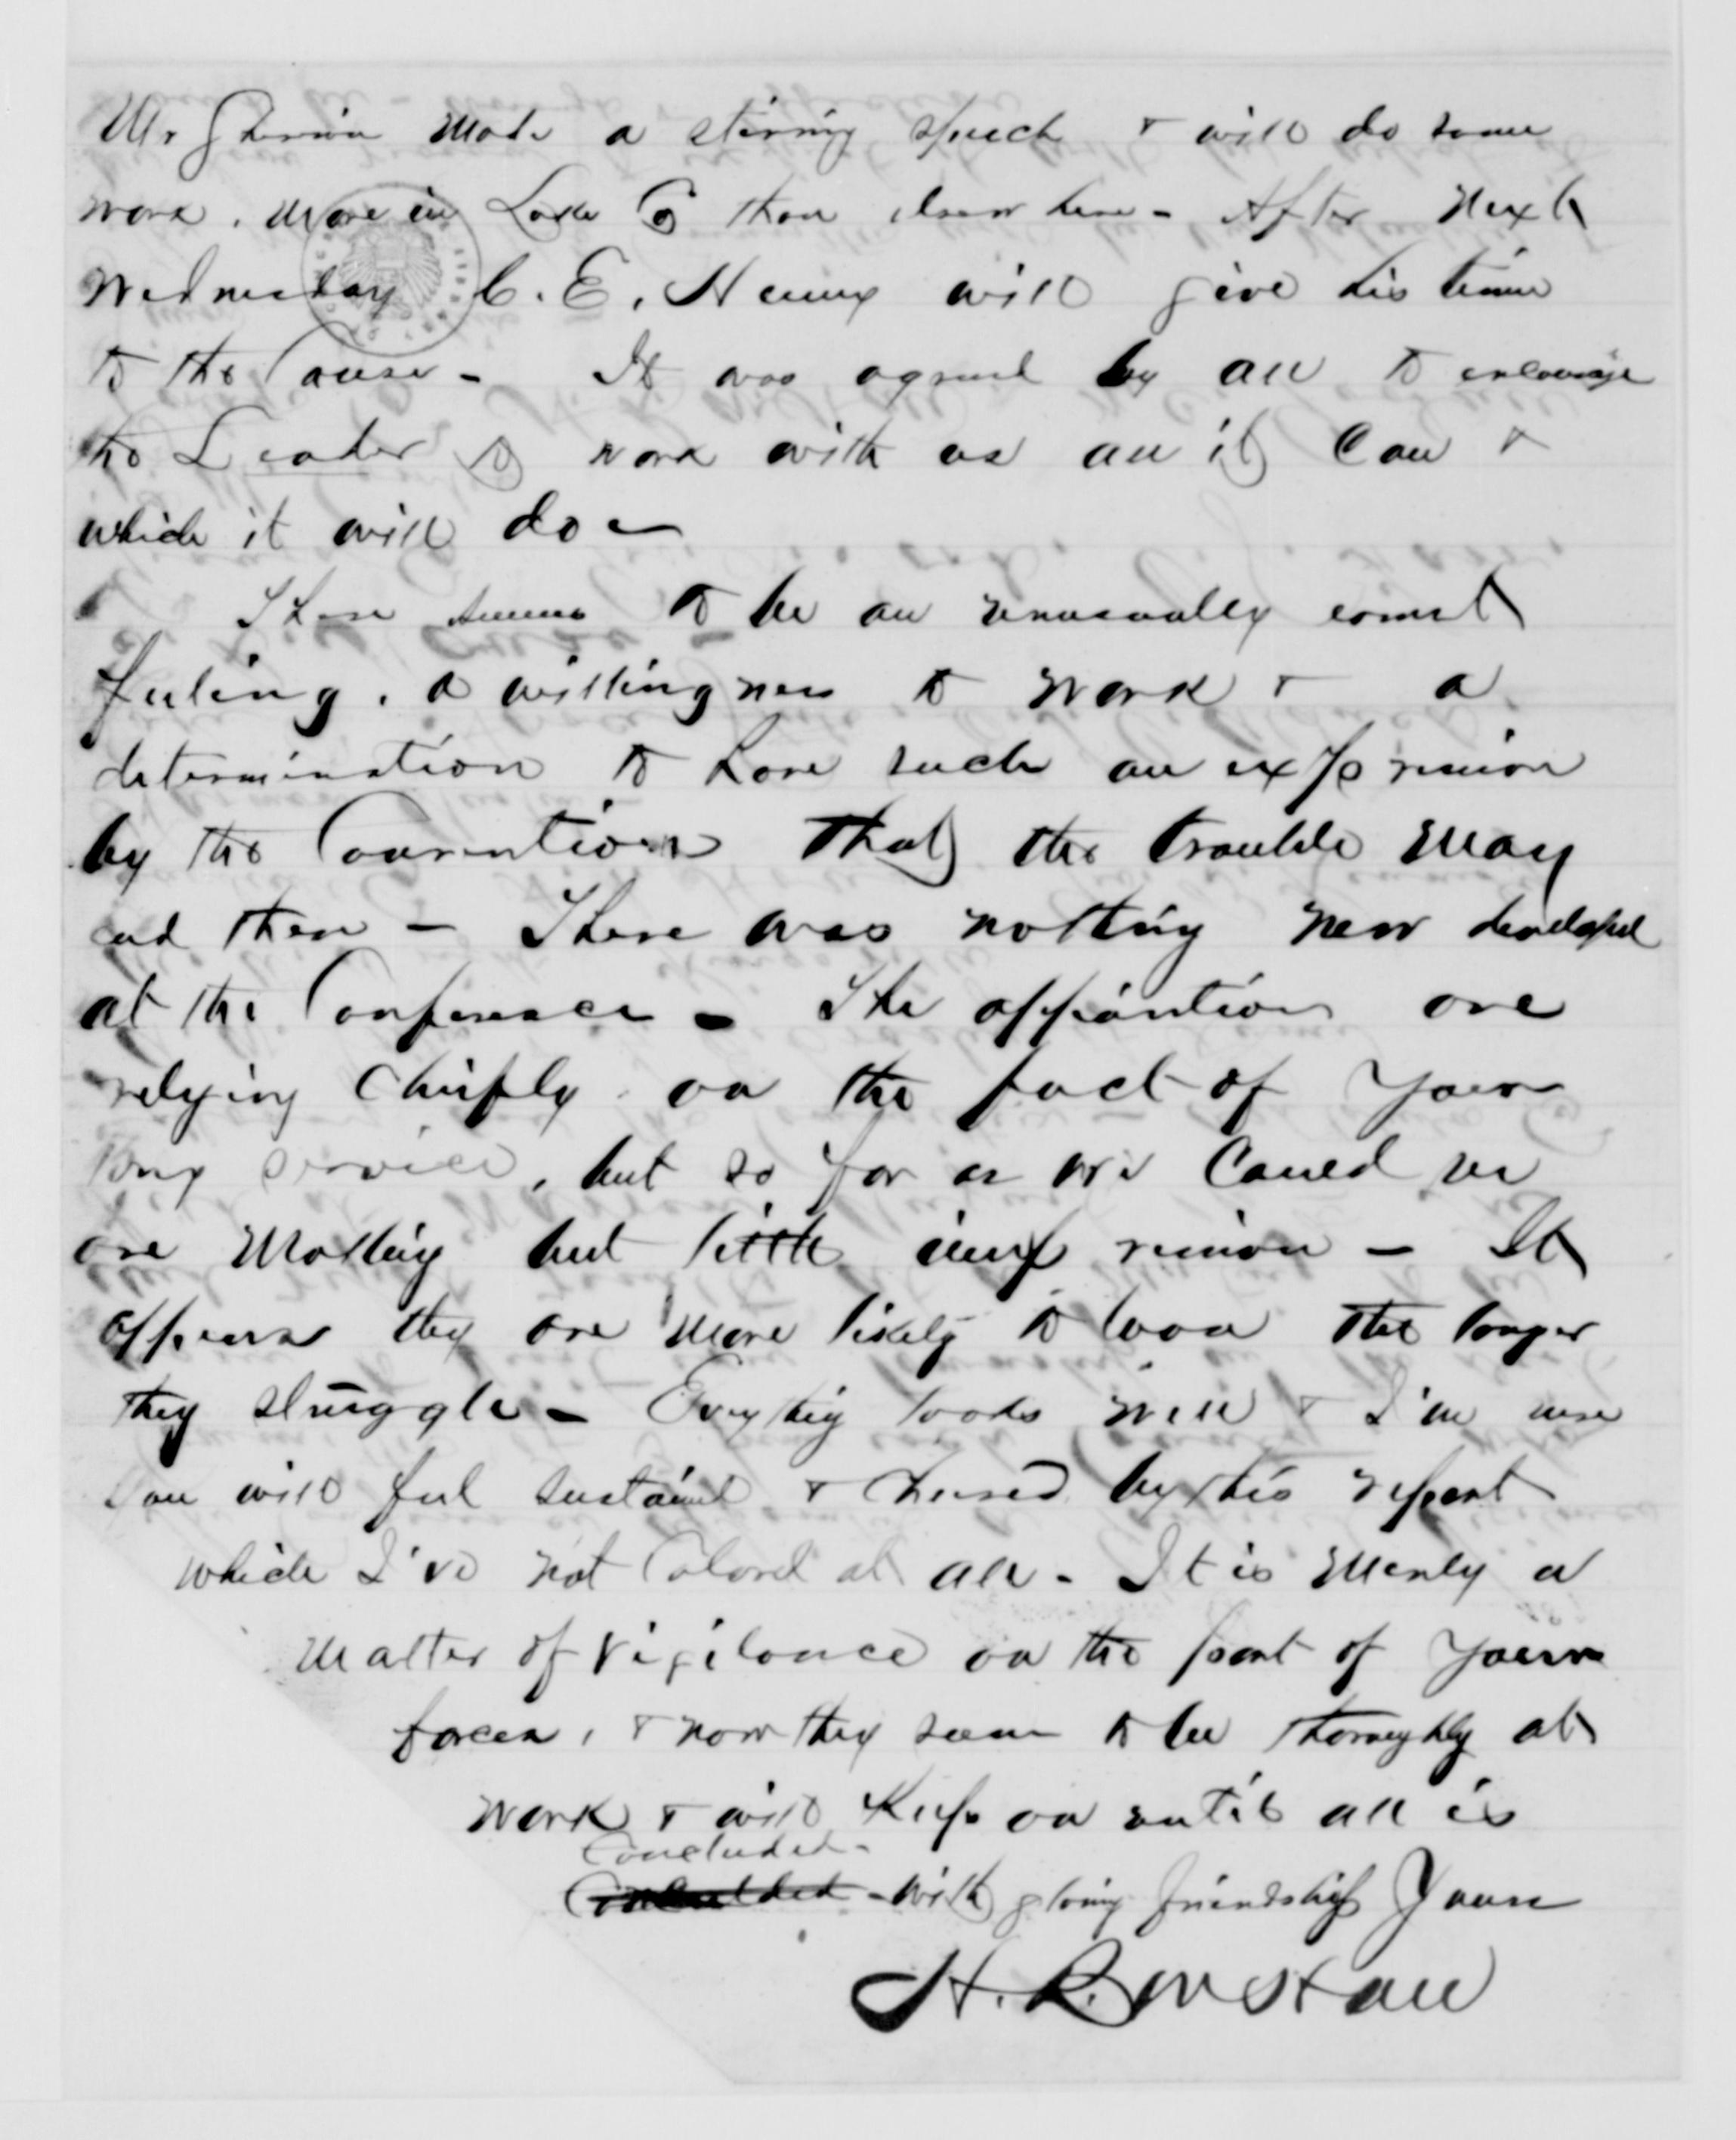 Mr Sherwin made a stirring speech & will do some
work, more in Lake Co than elsewhere - After next
Wednesday C. E. Henry will give his time
to the Cause - It was agreed by all to encourage
the Leader to work with us all it can &
which it will do -
There seems to be an unusually earnest
feeling, a willingness to work & a
determination to have such an expression
by the Convention that the trouble may
end there - There was nothing new developed
at the Conference - The opposition are
relying chiefly on the fact of your
long service, but so far as we could see
are making but little impression - It
appears they are more likely to loose the longer
they struggle - Everything looks well & I'm sure
you will feel sustained & cheered by this report
which I've not colored at all - It is merely a
matter of vigilance on the part of your
forces, & now they seem to be thoroughly at
work & will keep on until all is
Concluded -
with glowing friendship Yours
H. R.